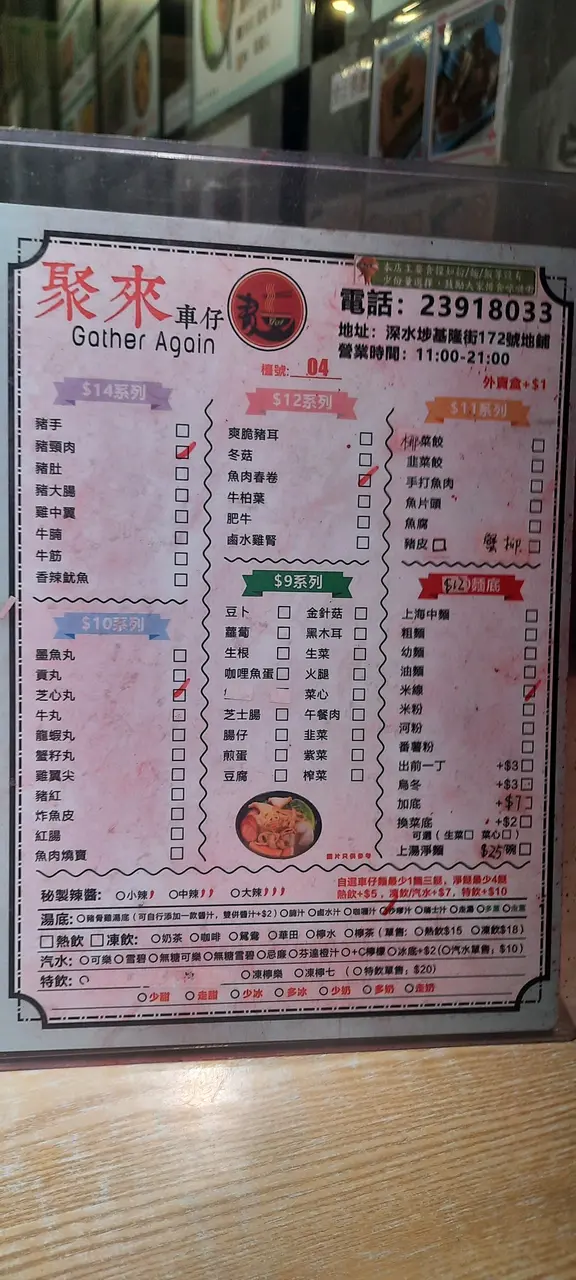 聚來車仔麵
Gather Again
本店主要食材如粉/麵/飯等設有
少份量選擇，鼓勵大家惜食
電話：23918033
地址：深水埗基隆街172號地舖
營業時間：11:00-21:00
檯號：04
外賣盒+$1
$14系列
豬手
豬頸肉
豬肚
豬大腸
雞中翼
牛腩
牛筋
香辣魷魚
$10系列
墨魚丸
貢丸
芝心丸
牛丸
龍蝦丸
蟹籽丸
雞翼尖
豬紅
炸魚皮
紅腸
魚肉燒賣
$12系列
爽脆豬耳
冬菇
魚肉春卷
牛柏葉
肥牛
鹵水雞腎
$9系列
豆卜 金針菇
蘿蔔 黑木耳
生根 生菜
咖哩魚蛋 火腿
菜心
芝士腸 午餐肉
腸仔 韭菜
煎蛋 紫菜
豆腐 榨菜
圖片只供參考
$11系列
椰菜餃
韭菜餃
手打魚肉
魚片頭
魚腐
豬皮 蟹柳
$12麵底
上海中麵
粗麵
幼麵
油麵
米線
米粉
河粉
番薯粉
出前一丁 +$3
烏冬 +$3
加底 +$7
換菜底 +$2
可選（生菜 菜心）
上湯淨麵 $25碗
秘製辣醬： 小辣 中辣 大辣
自選車仔麵最少1麵三餸，淨餸最少4餸
熱飲+$5，凍飲/汽水+$7，特飲+$10
湯底：豬骨雞湯底（可自行添加一款醬汁，雙併醬汁+$2） 腩汁 鹵水汁 咖喱汁 沙嗲汁 瑞士汁 走湯 多蔥 走蔥
熱飲 凍飲：奶茶 咖啡 鴛鴦 華田 檸水 檸茶（單售：熱飲$15 凍飲$18）
汽水：可樂 雪碧 無糖可樂 無糖雪碧 忌廉 芬達橙汁 +C檸檬 冰底+$2（汽水單售；$10）
特飲： 凍檸樂 凍檸七 （特飲單售；$20）
少甜 走甜 少冰 多冰 少奶 多奶 走奶